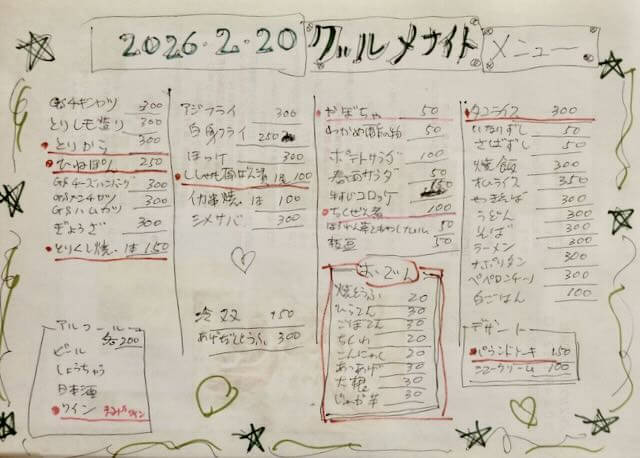 2026.2.20 グルメナイト メニュー
GSチキンカツ 300
とりしも造り 300
とりから 300
ひねぽん 250
GSチーズハンバーグ 300
GSメンチカツ 300
GSハムカツ
ぎょうざ 300
とりくし焼 1本 150
アジフライ 300
白身フライ 250
ほっけ 300
ししゃも 1本 100
イカ串焼 1本 100
シメサバ 300
冷奴 150
あげだしどうふ 300
かぼちゃ 50
わかめ 50
ポテトサラダ 100
春雨サラダ 50
牛すじコロッケ
ちくぜん煮 100
50
枝豆 50
おでん
焼とうふ 20
ひらてん 30
ごぼてん 30
ちくわ 20
こんにゃく 20
あつあげ 30
大根 30
じゃが芋 30
タコライス 300
いなりずし 50
さばずし 50
焼飯 300
オムライス 350
やきそば 300
うどん 300
そば 300
ラーメン 300
ナポリタン 300
ペペロンチーノ 300
白ごはん 100
デザート
パウンドケーキ 150
シュークリーム 100
アルコール
各200
ビール
しょうちゅう
日本酒
ワイン